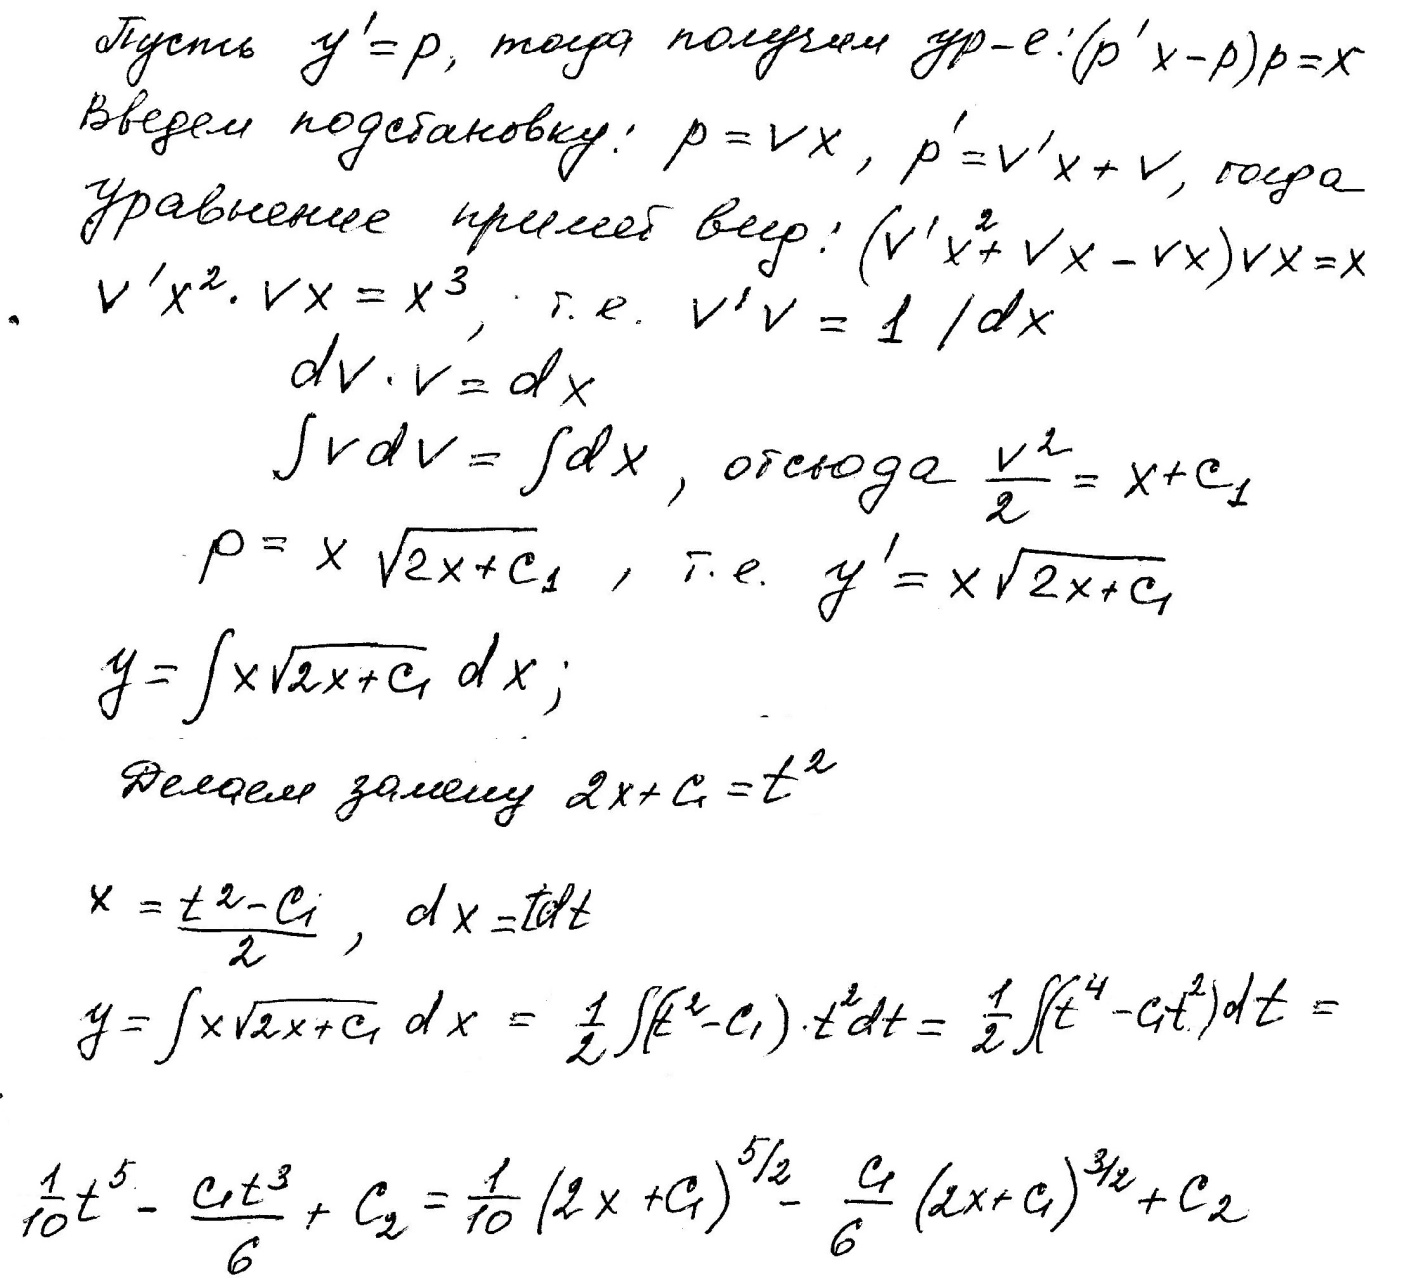 Пусть y' = p, тогда получим ур-е: (p'x - p)p = x
Введем подстановку: p = vx, p' = v'x + v, тогда
уравнение примет вид: (v'x² + vx - vx)vx = x
v'x² · vx = x³, т.е. v'v = 1 /dx
dv · v = dx
∫vdv = ∫dx, отсюда v²/2 = x + C₁
p = x √(2x + C₁), т.е. y' = x√(2x + C₁)
y = ∫x√(2x + C₁) dx;
Делаем замену 2x + C₁ = t²
x = (t² - C₁)/2, dx = tdt
y = ∫x√(2x + C₁) dx = 1/2 ∫(t² - C₁) · t²dt = 1/2 ∫(t⁴ - C₁t²)dt =
1/10 t⁵ - C₁t³/6 + C₂ = 1/10 (2x + C₁)^5/2 - C₁/6 (2x + C₁)^3/2 + C₂